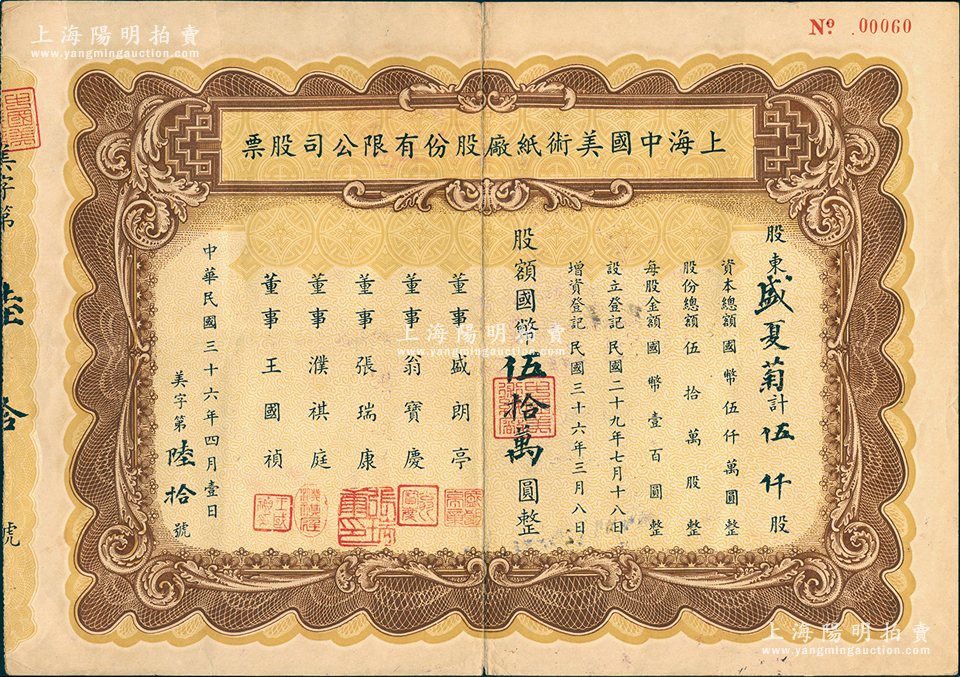 上海陽明拍賣
www.yangmingauction.com
Nº 00060
上海中國美術紙廠股份有限公司股票
股東盛夏菊計伍仟股
資本總額國幣伍仟萬圓整
股份總額伍拾萬股整
每股金額國幣壹百圓整
設立登記民國二十九年七月十八日
增資登記民國三十六年三月八日
股額國幣伍拾萬圓整
董事盛朗亭
董事翁寶慶
董事張瑞康
董事濮祺庭
董事王國禎
中華民國三十六年四月壹日
美字第陸拾號
美字第陸拾號
上海陽明拍賣
www.yangmingauction.com
上海陽明拍賣
www.yangmingauction.com